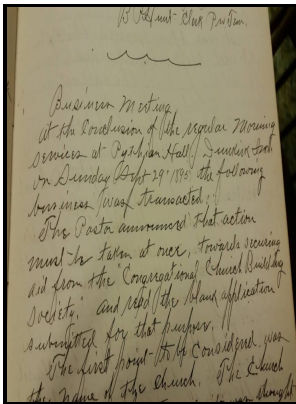 Clerk Pro Tem.
Business Meeting
at the Conclusion of the regular Morning
services at Pythian Hall, Dunkirk
on Sunday Sept 29" 1895 the following
business was transacted;
The Pastor announced that action
must be taken at once, towards securing
aid from the "Congregational Church Building
Society," and read the blank application
submitted for that purpose.
The first point to be considered, was
the name of the church. The Church
thought